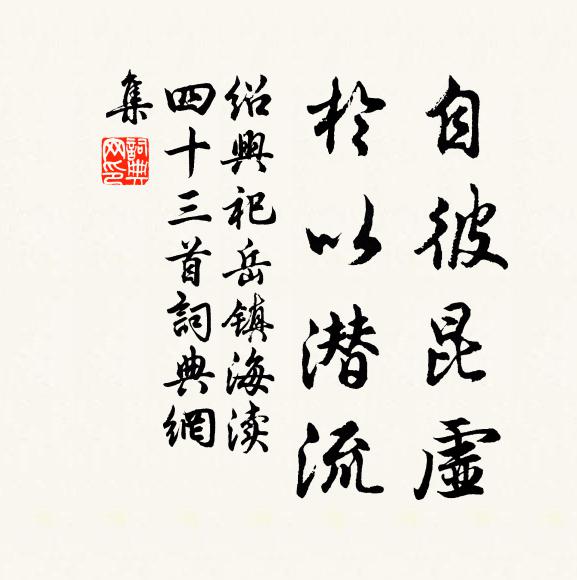 自彼昆虛
於以潛流
绍興祀岳镇海渎
四十三首詞典網
集
詞典
网印